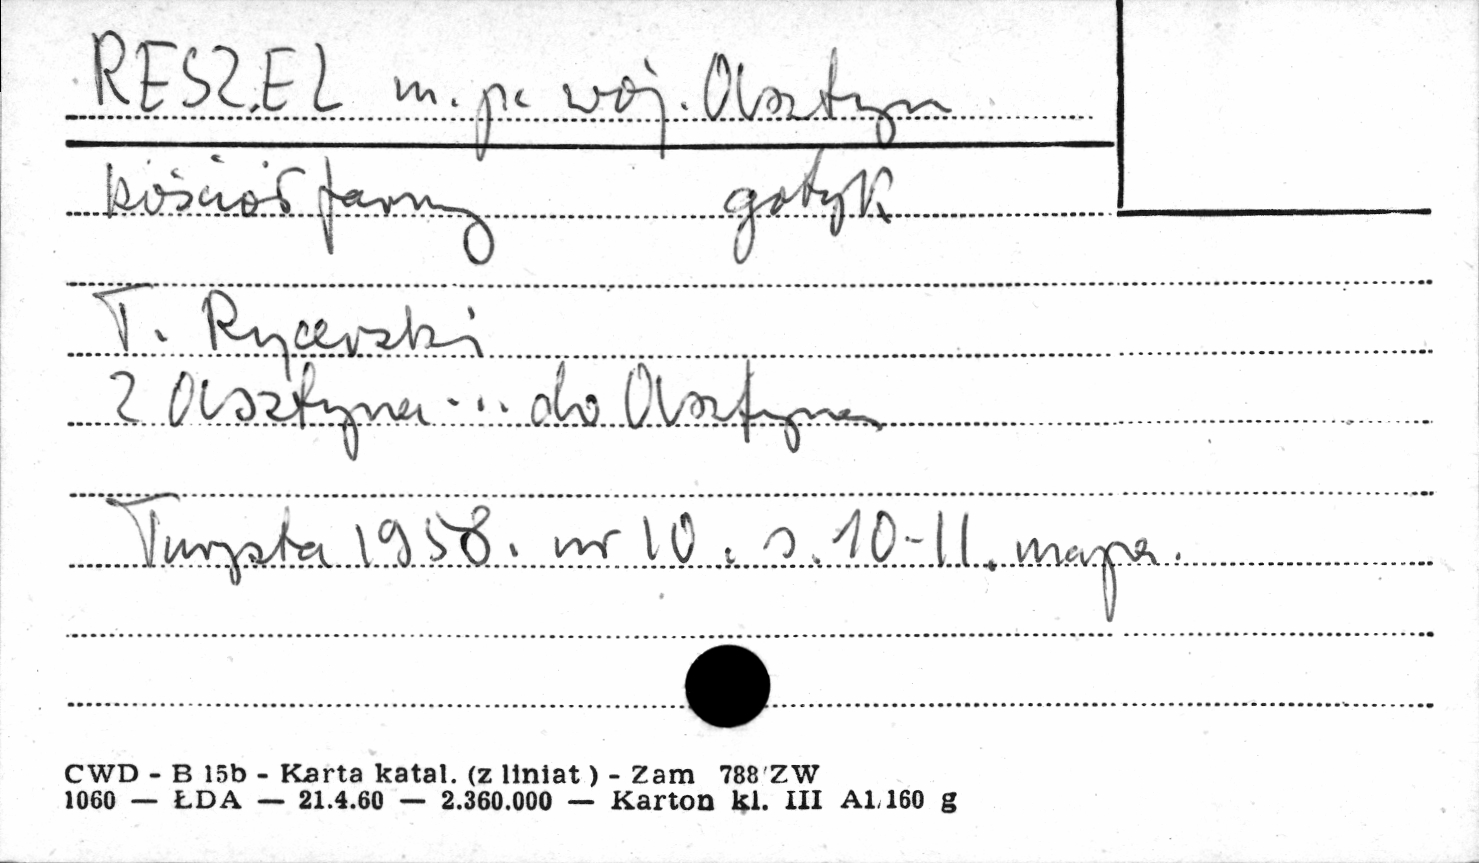 RESZEL m. pow. woj. Olsztyn
kościół farny gotyk
T. Rycerski
Z Olsztyna... do Olsztyna
Turysta 1958. nr 10. s. 10-11. mapa.
CWD - B 15b - Karta katal. (z liniat) - Zam 788/ZW
1060 — ŁDA — 21.4.60 — 2.360.000 — Karton kl. III A1.160 g